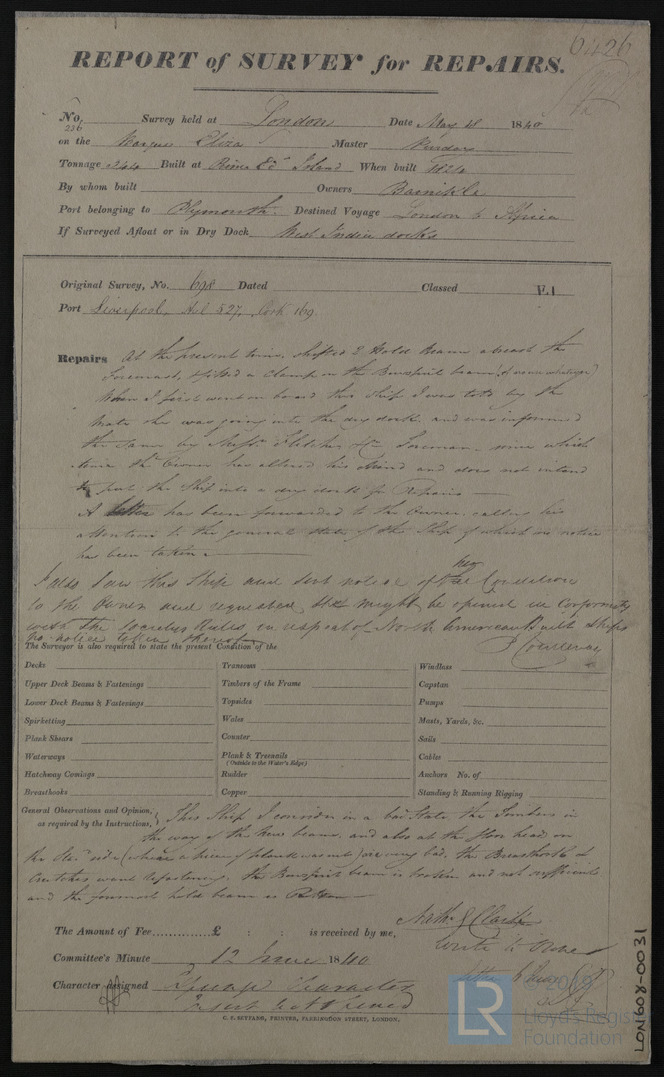 6426
REPORT of SURVEY for REPAIRS.
No. 236 Survey held at London Date May 1840
on the Barque Eliza Master
Tonnage 244 Built at Prince Ed. Island When built 1824
By whom built Owners
Port belonging to Plymouth. Destined Voyage London to Africa
If Surveyed Afloat or in Dry Dock West India docks
Original Survey, No. 698 Dated Classed Æ.1
Port Liverpool, 527, Cork 169
Repairs At the present time, shifted 2 Hold Beams abreast the
Foremast, a Clamp on the Bowsprit beam
When I first went on board this Ship I was told by the
Mate she was going into the dry dock and was informed
the same by Messrs Fletcher Foreman since which
time the Owner has altered his mind and does not intend
to put the Ship into a dry dock for Repairs
A letter has been forwarded to the Owner calling his
attention to the general state of the Ship of which no notice
has been taken.
I also saw this Ship and sent notice of her Condition
to the Owner and requested she might be opened in Conformity
with the Societies Rules in respect of North American built Ships
no notice taken thereof
The Surveyor is also required to state the present Condition of the
Decks Transoms Windlass
Upper Deck Beams & Fastenings Timbers of the Frame Capstan
Lower Deck Beams & Fastenings Topsides Pumps
Spirketting Wales Masts, Yards, &c.
Plank Shears Counter Sails
Waterways Plank & Treenails (Outside to the Water's Edge) Cables
Hatchway Comings Rudder Anchors No. of
Breasthooks Copper Standing & Running Rigging
General Observations and Opinion, as required by the Instructions, This Ship I consider in a bad State the Timbers in
the way of the beams, and also at the floor head on
the side (where a piece of plank was out) are very bad, the Breasthooks &
Crutches want refastening, the Bowsprit beam is broken and not sufficient
and the foremost hold beam is Rotten
The Amount of Fee £ : : is received by me,
Committee's Minute 12 June 1840
Character assigned
C. F. SEYFANG, PRINTER, FARRINGDON STREET, LONDON.
LON608-0031
LR
© 2019
Lloyd's Register
Foundation